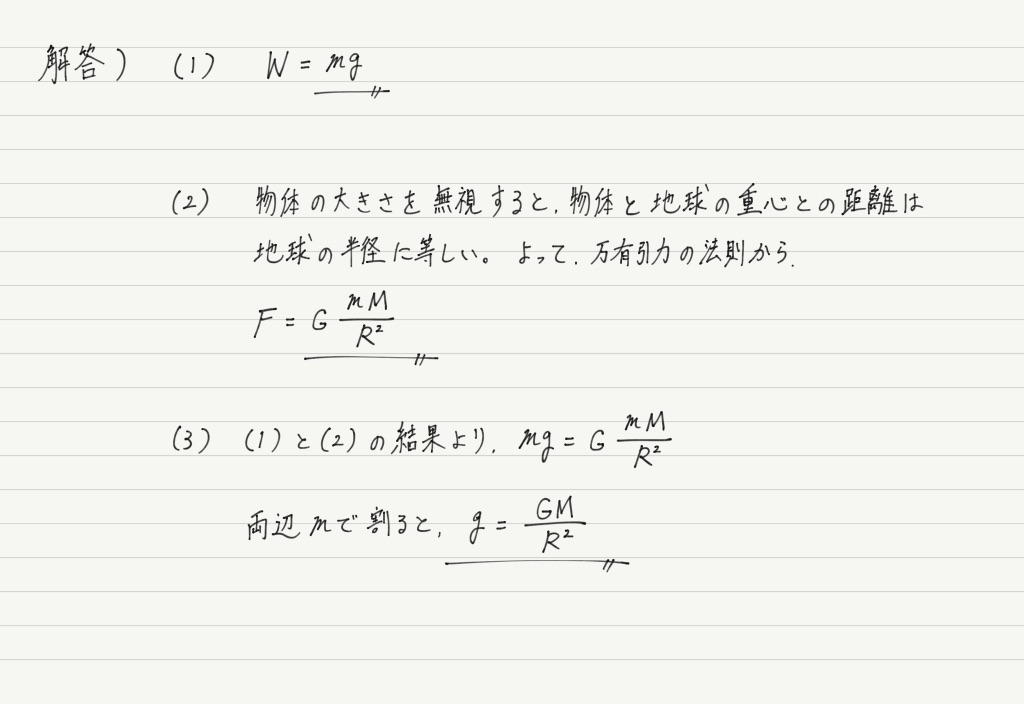 解答) (1) W = mg
(2) 物体の大きさを無視すると, 物体と地球の重心との距離は
地球の半径に等しい。よって, 万有引力の法則から,
F = G mM/R²
(3) (1)と(2)の結果より, mg = G mM/R²
両辺mで割ると, g = GM/R²